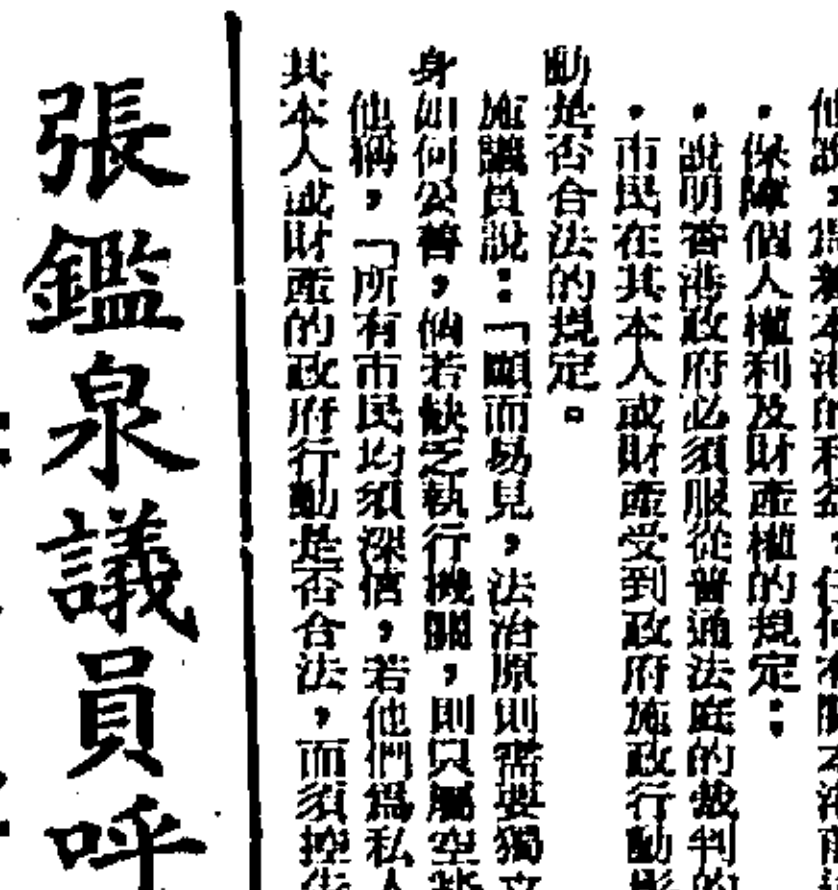 他說，為着本港的利益，任何有關本港前
•保障個人權利及財產權的規定：
•說明香港政府必須服從普通法庭的裁判的
•市民在其本人或財產受到政府施政行動影
動是否合法的規定。
施議員說：「顯而易見，法治原則需要獨立
身如何公善，倘若缺乏執行機關，則只屬空談
他稱，「所有市民均須深信，若他們爲私人
其本人或財產的政府行動是否合法，而須控告
張鑑泉議員呼